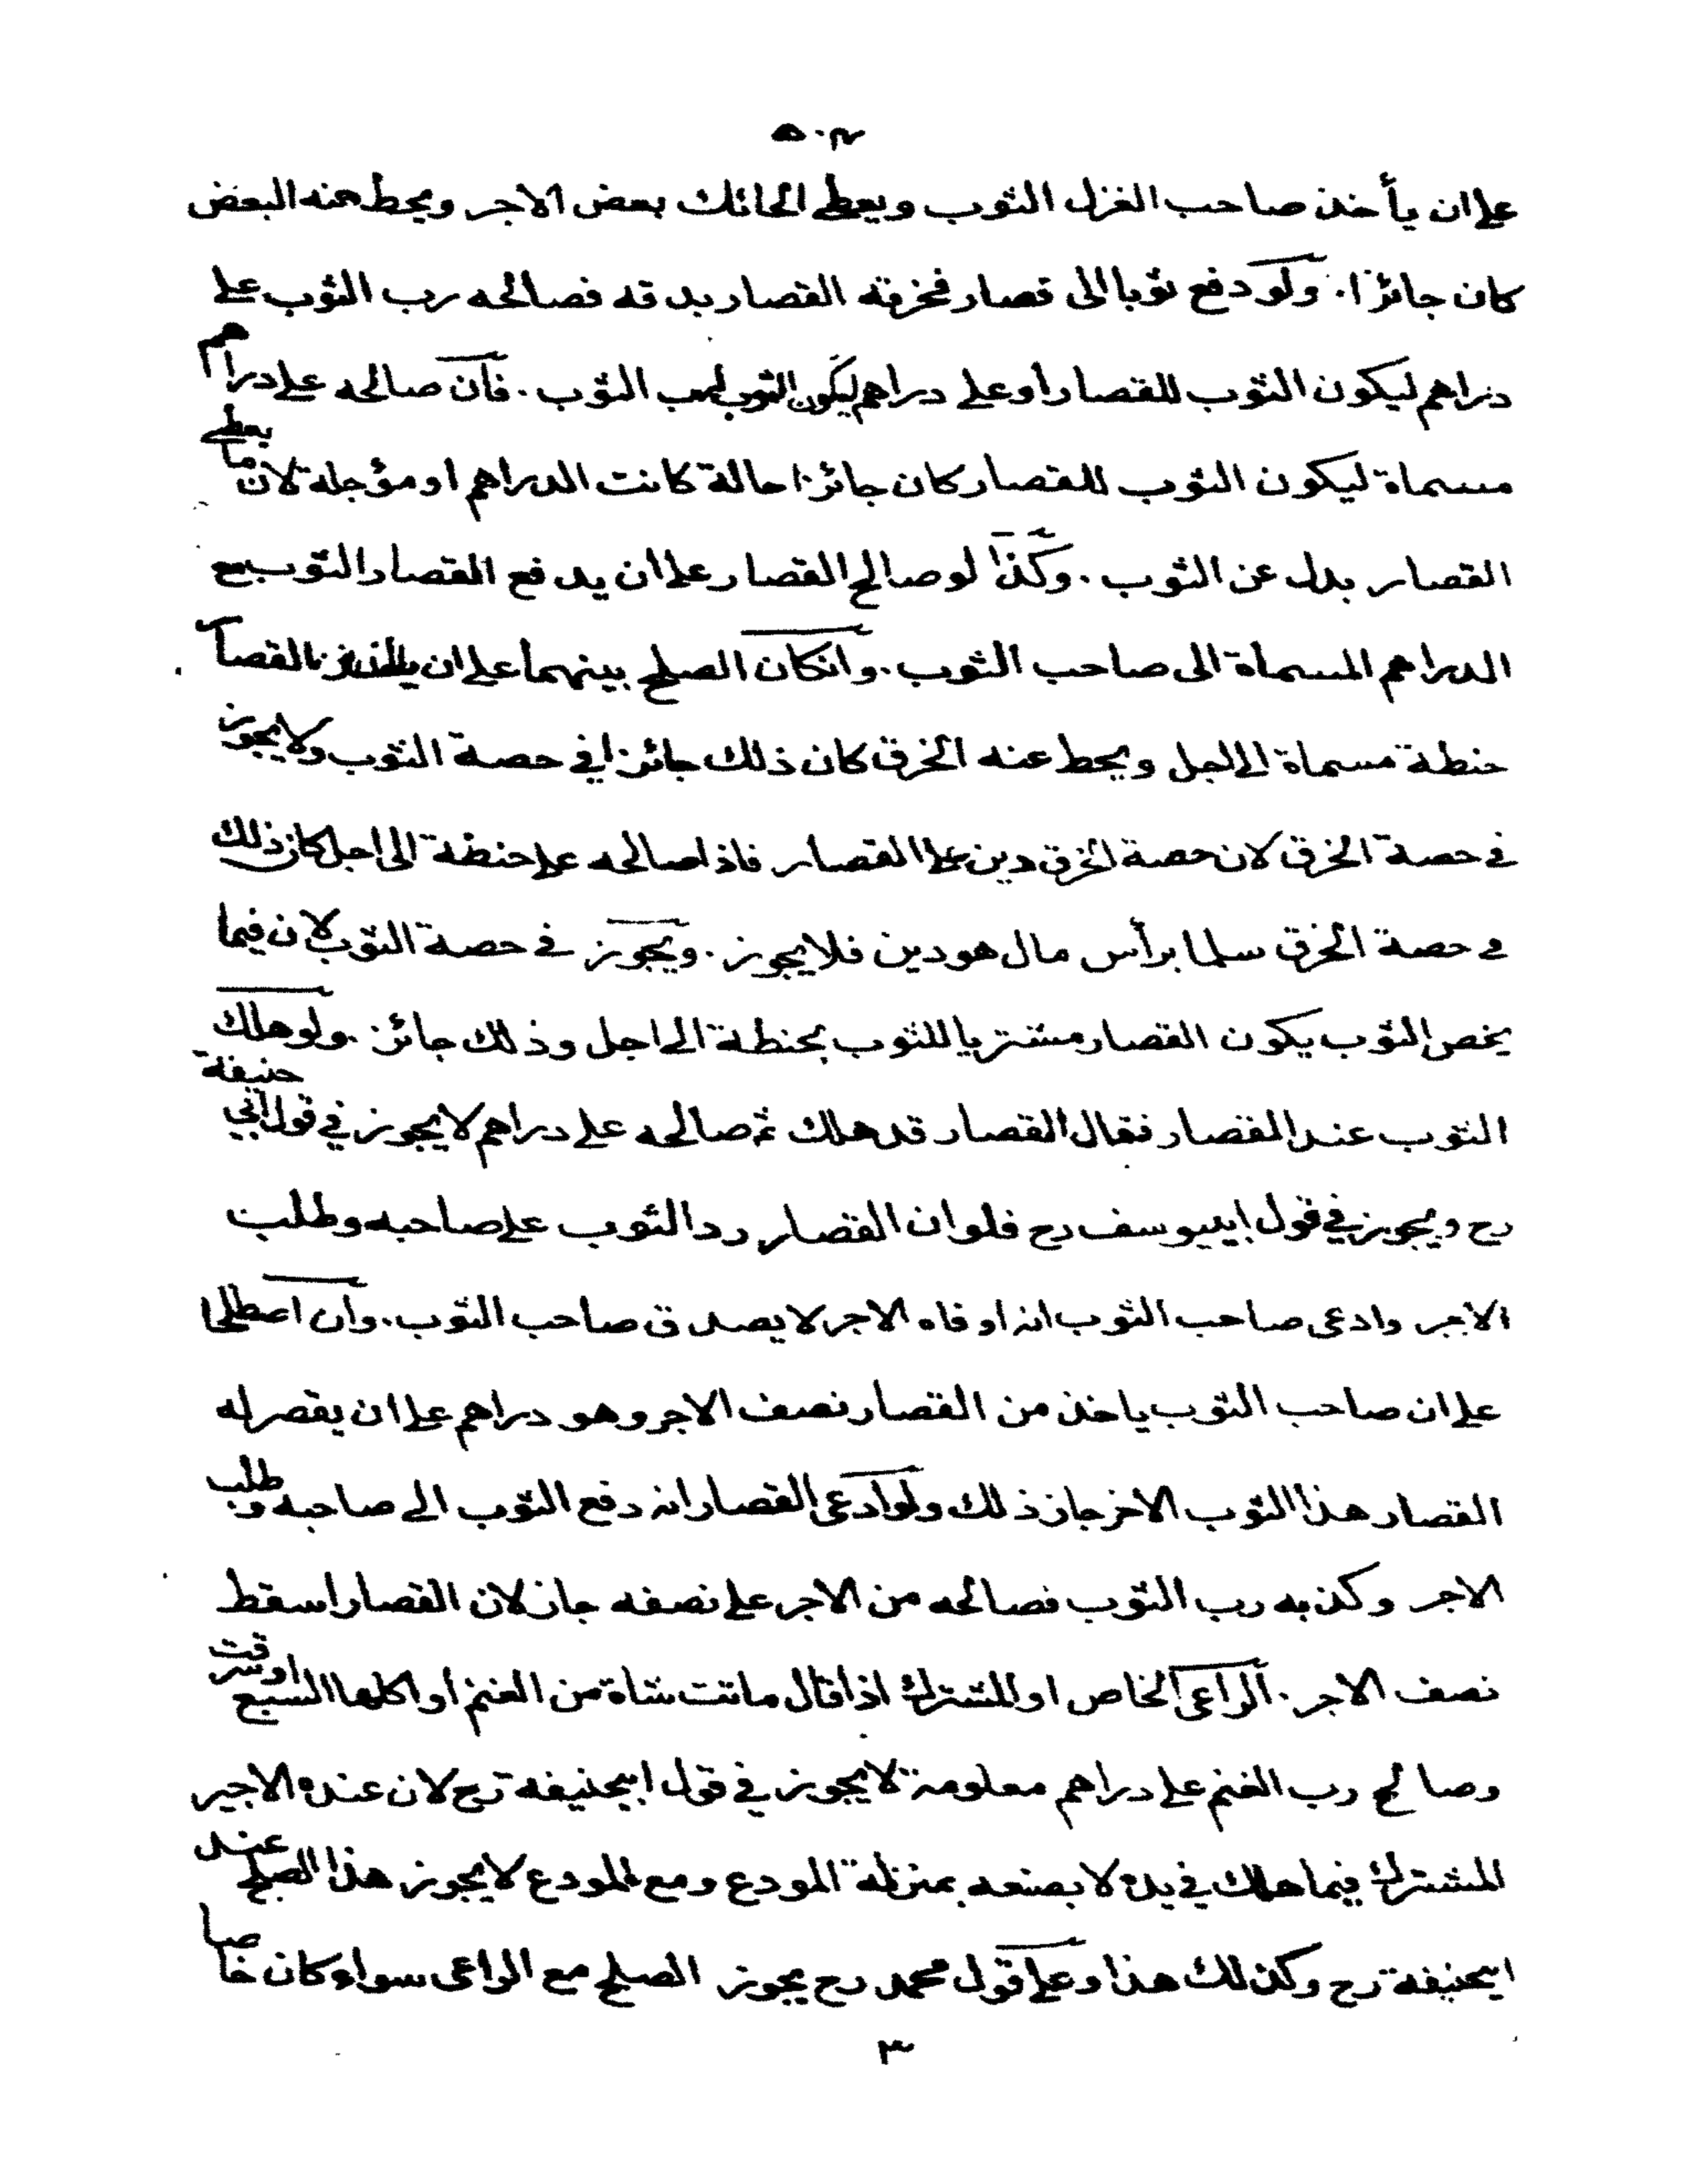 ٥٠٤
على ان يأخذ صاحب الغزل الثوب ويعطى الحائك بعض الاجر ويحط عنه البعض
كان جائزا. ولو دفع ثوبا الى قصار فخرقه القصار بدقه فصالحه رب الثوب على
دراهم ليكون الثوب للقصار او على دراهم ليكون الثوب لرب الثوب. فان صالحه على دراهم
مسماة ليكون الثوب للقصار كان جائزا حالة كانت الدراهم او مؤجلة لان ما يعطى
القصار بدل عن الثوب. وكذا لو صالح القصار على ان يدفع القصار الثوب مع
الدراهم المسماة الى صاحب الثوب. وانكان الصلح بينهما على ان القصار
حنطة مسماة الى اجل ويحط عنه الخرق كان ذلك جائزا في حصة الثوب ولا يجوز
في حصة الخرق لان حصة الخرق دين على القصار فاذا صالحه على حنطة الى اجل كان ذلك
في حصة الخرق سلما برأس مال هو دين فلا يجوز. ويجوز في حصة الثوب لان فيما
يخص الثوب يكون القصار مشتريا للثوب بحنطة الى اجل وذلك جائز. ولو هلك
الثوب عند القصار فقال القصار قد هلك ثم صالحه على دراهم لا يجوز في قول ابي حنيفة
رح ويجوز في قول ابييوسف رح فلو ان القصار رد الثوب على صاحبه وطلب
الاجر وادعى صاحب الثوب انه اوفاه الاجر لا يصدق صاحب الثوب. وان اصطلحا
على ان صاحب الثوب ياخذ من القصار نصف الاجر وهو دراهم على ان يقصر له
القصار هذا الثوب الاخر جاز ذلك ولو ادعى القصار انه دفع الثوب الى صاحبه وطلب
الاجر وكذبه رب الثوب فصالحه من الاجر على نصفه جاز لان القصار اسقط
نصف الاجر. الراعى الخاص او المشترك اذا قال ماتت شاة من الغنم او اكلها السبع او سرقت
وصالح رب الغنم على دراهم معلومة لا يجوز في قول ابيحنيفه رح لان عنده الاجير
المشترك فيما هلك في يده لا بصنعه بمنزلة المودع ومع المودع لا يجوز هذا الصلح عند
ابيحنيفة رح وكذلك هذا وعلى قول محمد رح يجوز الصلح مع الراعى سواء كان خاصا
٣